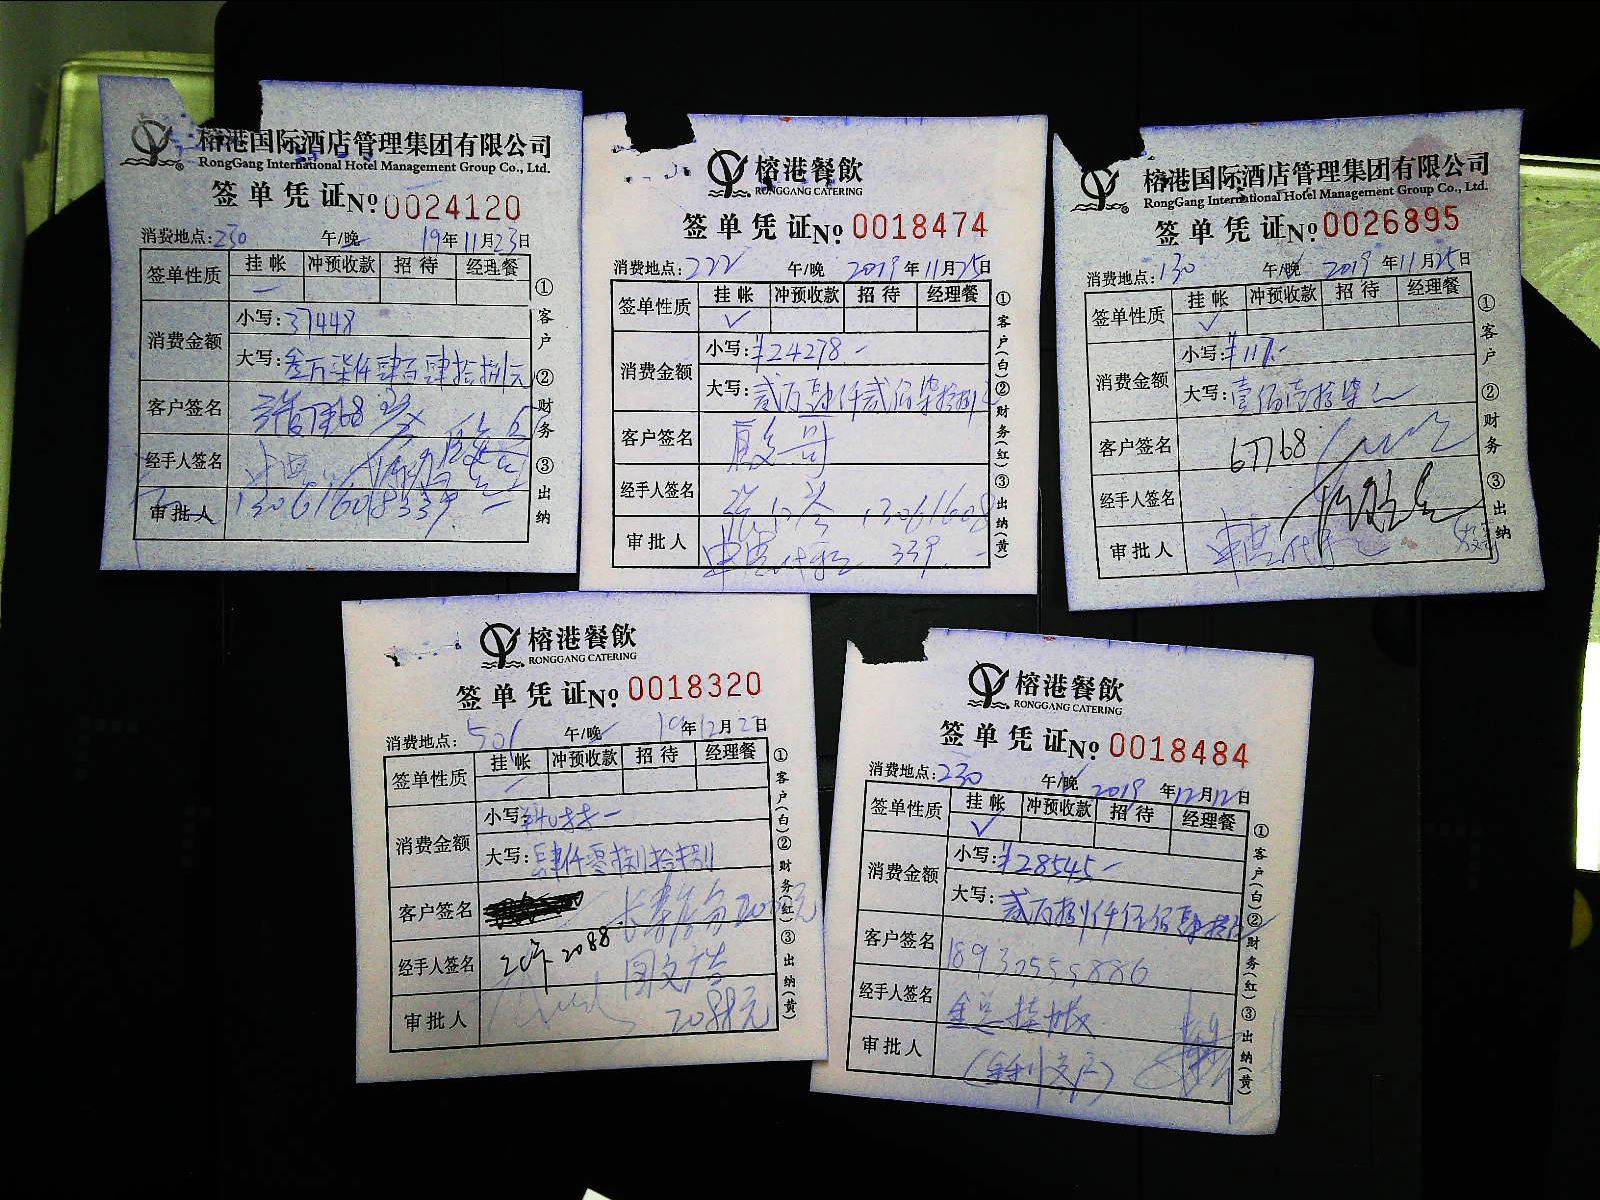 榕港国际酒店管理集团有限公司
RongGang International Hotel Management Group Co., Ltd.
签单凭证 №0024120
消费地点:230 午/晚 19年11月23日
签单性质 挂帐 冲预收款 招待 经理餐
消费金额 小写:37448
大写:叁万柒仟肆百肆拾捌元
客户签名
经手人签名
审批人 13061608339
①客户 ②财务 ③出纳
榕港餐飲
RONGGANG CATERING
签单凭证 №0018474
消费地点:222 午/晚 2019年11月25日
签单性质 挂帐 冲预收款 招待 经理餐
✓
消费金额 小写:¥24278.-
大写:贰万肆仟贰佰柒拾捌元
客户签名
经手人签名 13061608
审批人 339
①客户(白)②财务(红)③出纳(黄)
榕港国际酒店管理集团有限公司
RongGang International Hotel Management Group Co., Ltd.
签单凭证 №0026895
消费地点:130 午/晚 2019年11月25日
签单性质 挂帐 冲预收款 招待 经理餐
✓
消费金额 小写:¥117.-
大写:壹佰壹拾柒元
客户签名
经手人签名
审批人
①客户 ②财务 ③出纳
榕港餐飲
RONGGANG CATERING
签单凭证 №0018320
消费地点:501 午/晚 19年12月2日
签单性质 挂帐 冲预收款 招待 经理餐
消费金额 小写:¥4088-
大写:肆仟零捌拾捌
客户签名
经手人签名 2088 图文广告
审批人 2088元
①客户(白)②财务(红)③出纳(黄)
榕港餐飲
RONGGANG CATERING
签单凭证 №0018484
消费地点:230 午/晚 2019年12月12日
签单性质 挂帐 冲预收款 招待 经理餐
✓
消费金额 小写:¥28545-
大写:贰万捌仟伍佰肆拾伍
客户签名 18930555886
经手人签名 金总挂帐
审批人
①客户(白)②财务(红)③出纳(黄)